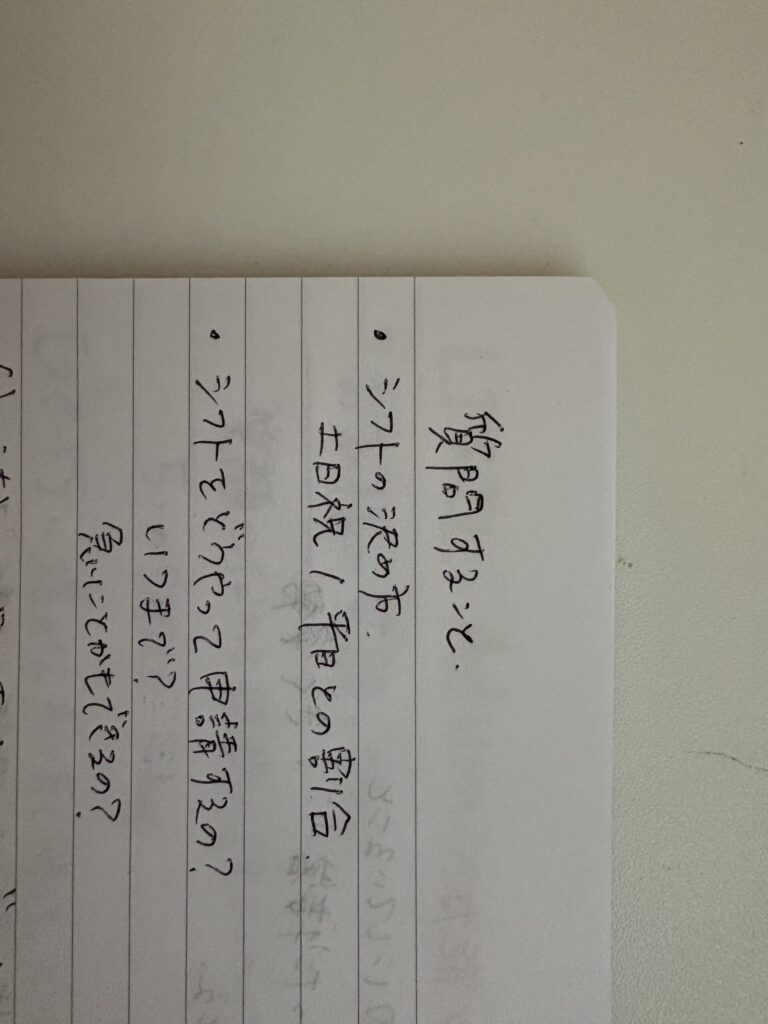 質問すること.
・シフトの決め方.
土日祝 / 平日との割合.
・シフトをどうやって申請するの?
いつまで?
急いことかもできるの?